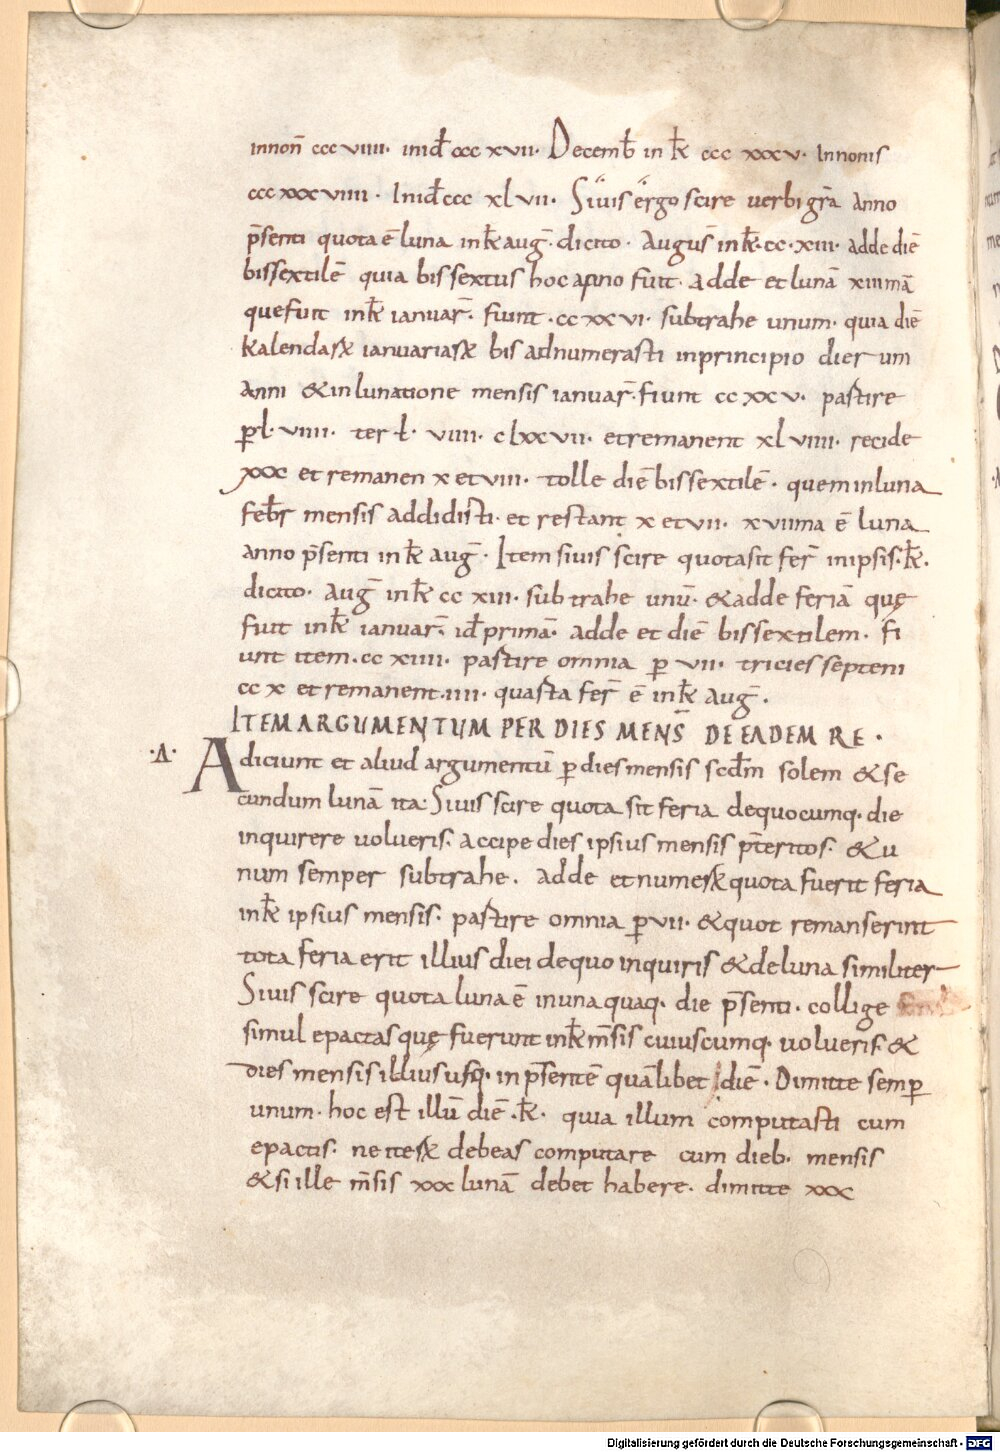 innon̄ ccc viiii· inid̄ ccc xvii· Decemb̄ in k̄ ccc xxxv· Innonis
ccc xxx viiii · Inid̄ ccc xl vii· Siuis ergo scire uerbi gr̄a anno
p̄senti quota ē luna ink̄ aug̅· dicito · augus̄ ink̄·cc·xiii· adde diē
bissextilē quia bissextus hoc anno fuit· adde et lunā xiiimā
que fuit ink̄ ianuar̄· fiunt·cc xx vi· subtrahe unum· quia diē
kalendaꝝ ianuariaꝝ bis adnumerasti inprincipio dierum
anni & in lunatione mensis ianuar̄· fiunt cc xx v· partire
p̱ l· viiii· ter ·l· viiii· clxxvii· et remanent xl viiii· recide
xxx et remanen x et viii· tolle diē bissextilē · quem inluna
febr̄ mensis addidisti· et restant x et vii· xviima ē luna
anno p̄senti in k̄ aug̅· Item siuis scire quota sit fer̄ inipsis·k̄·
dicito· aug̅ ink̄ cc xiii· subtrahe unū· & adde feriā quę
fuit ink̄ ianuar̄· id̄ primā· adde et diē bissextilem· fi
unt item·cc xiiii· partire omnia p̱ vii· tricies septeni
cc x et remanent·iiii· quarta fer̄ ē ink̄ aug̅·
ITEM ARGUMENTUM PER DIES MENS̄ DE EADEM RE ·
·Λ· Adiciunt et aliud argumentū p̱ dies mensis scd̄m solem & se
cundum lunā ita: Siuis scire quota sit feria de quocumq· die
inquirere uolueris· accipe dies ipsius mensis p̄teritos· & u
num semper subtrahe· adde et numeꝝ quota fuerit feria
ink̄ ipsius mensis· partire omnia p̱ vii· & quot remanserint
tota feria erit illius diei de quo inquiris & de luna similiter
Siuis scire quota luna ē in una quaq· die p̄senti· collige
simul epactas quę fuerunt ink̄ m̄sis cuiuscumq· uolueris· &
dies mensis illius usq· in p̄sentē quālibet diē· Dimitte semp̱
unum· hoc est illū diē ·k̄· quia illum computasti cum
epactis· ne iteꝝ debeas computare cum dieb· mensis
& si ille m̄sis xxx lunā debet habere· dimitte xxx
Digitalisierung gefördert durch die Deutsche Forschungsgemeinschaft - DFG